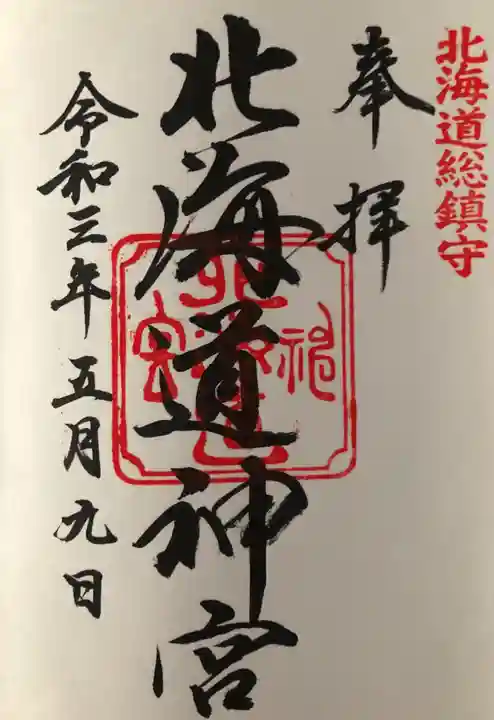 北海道総鎮守
奉拝
北海道神宮
令和三年五月九日